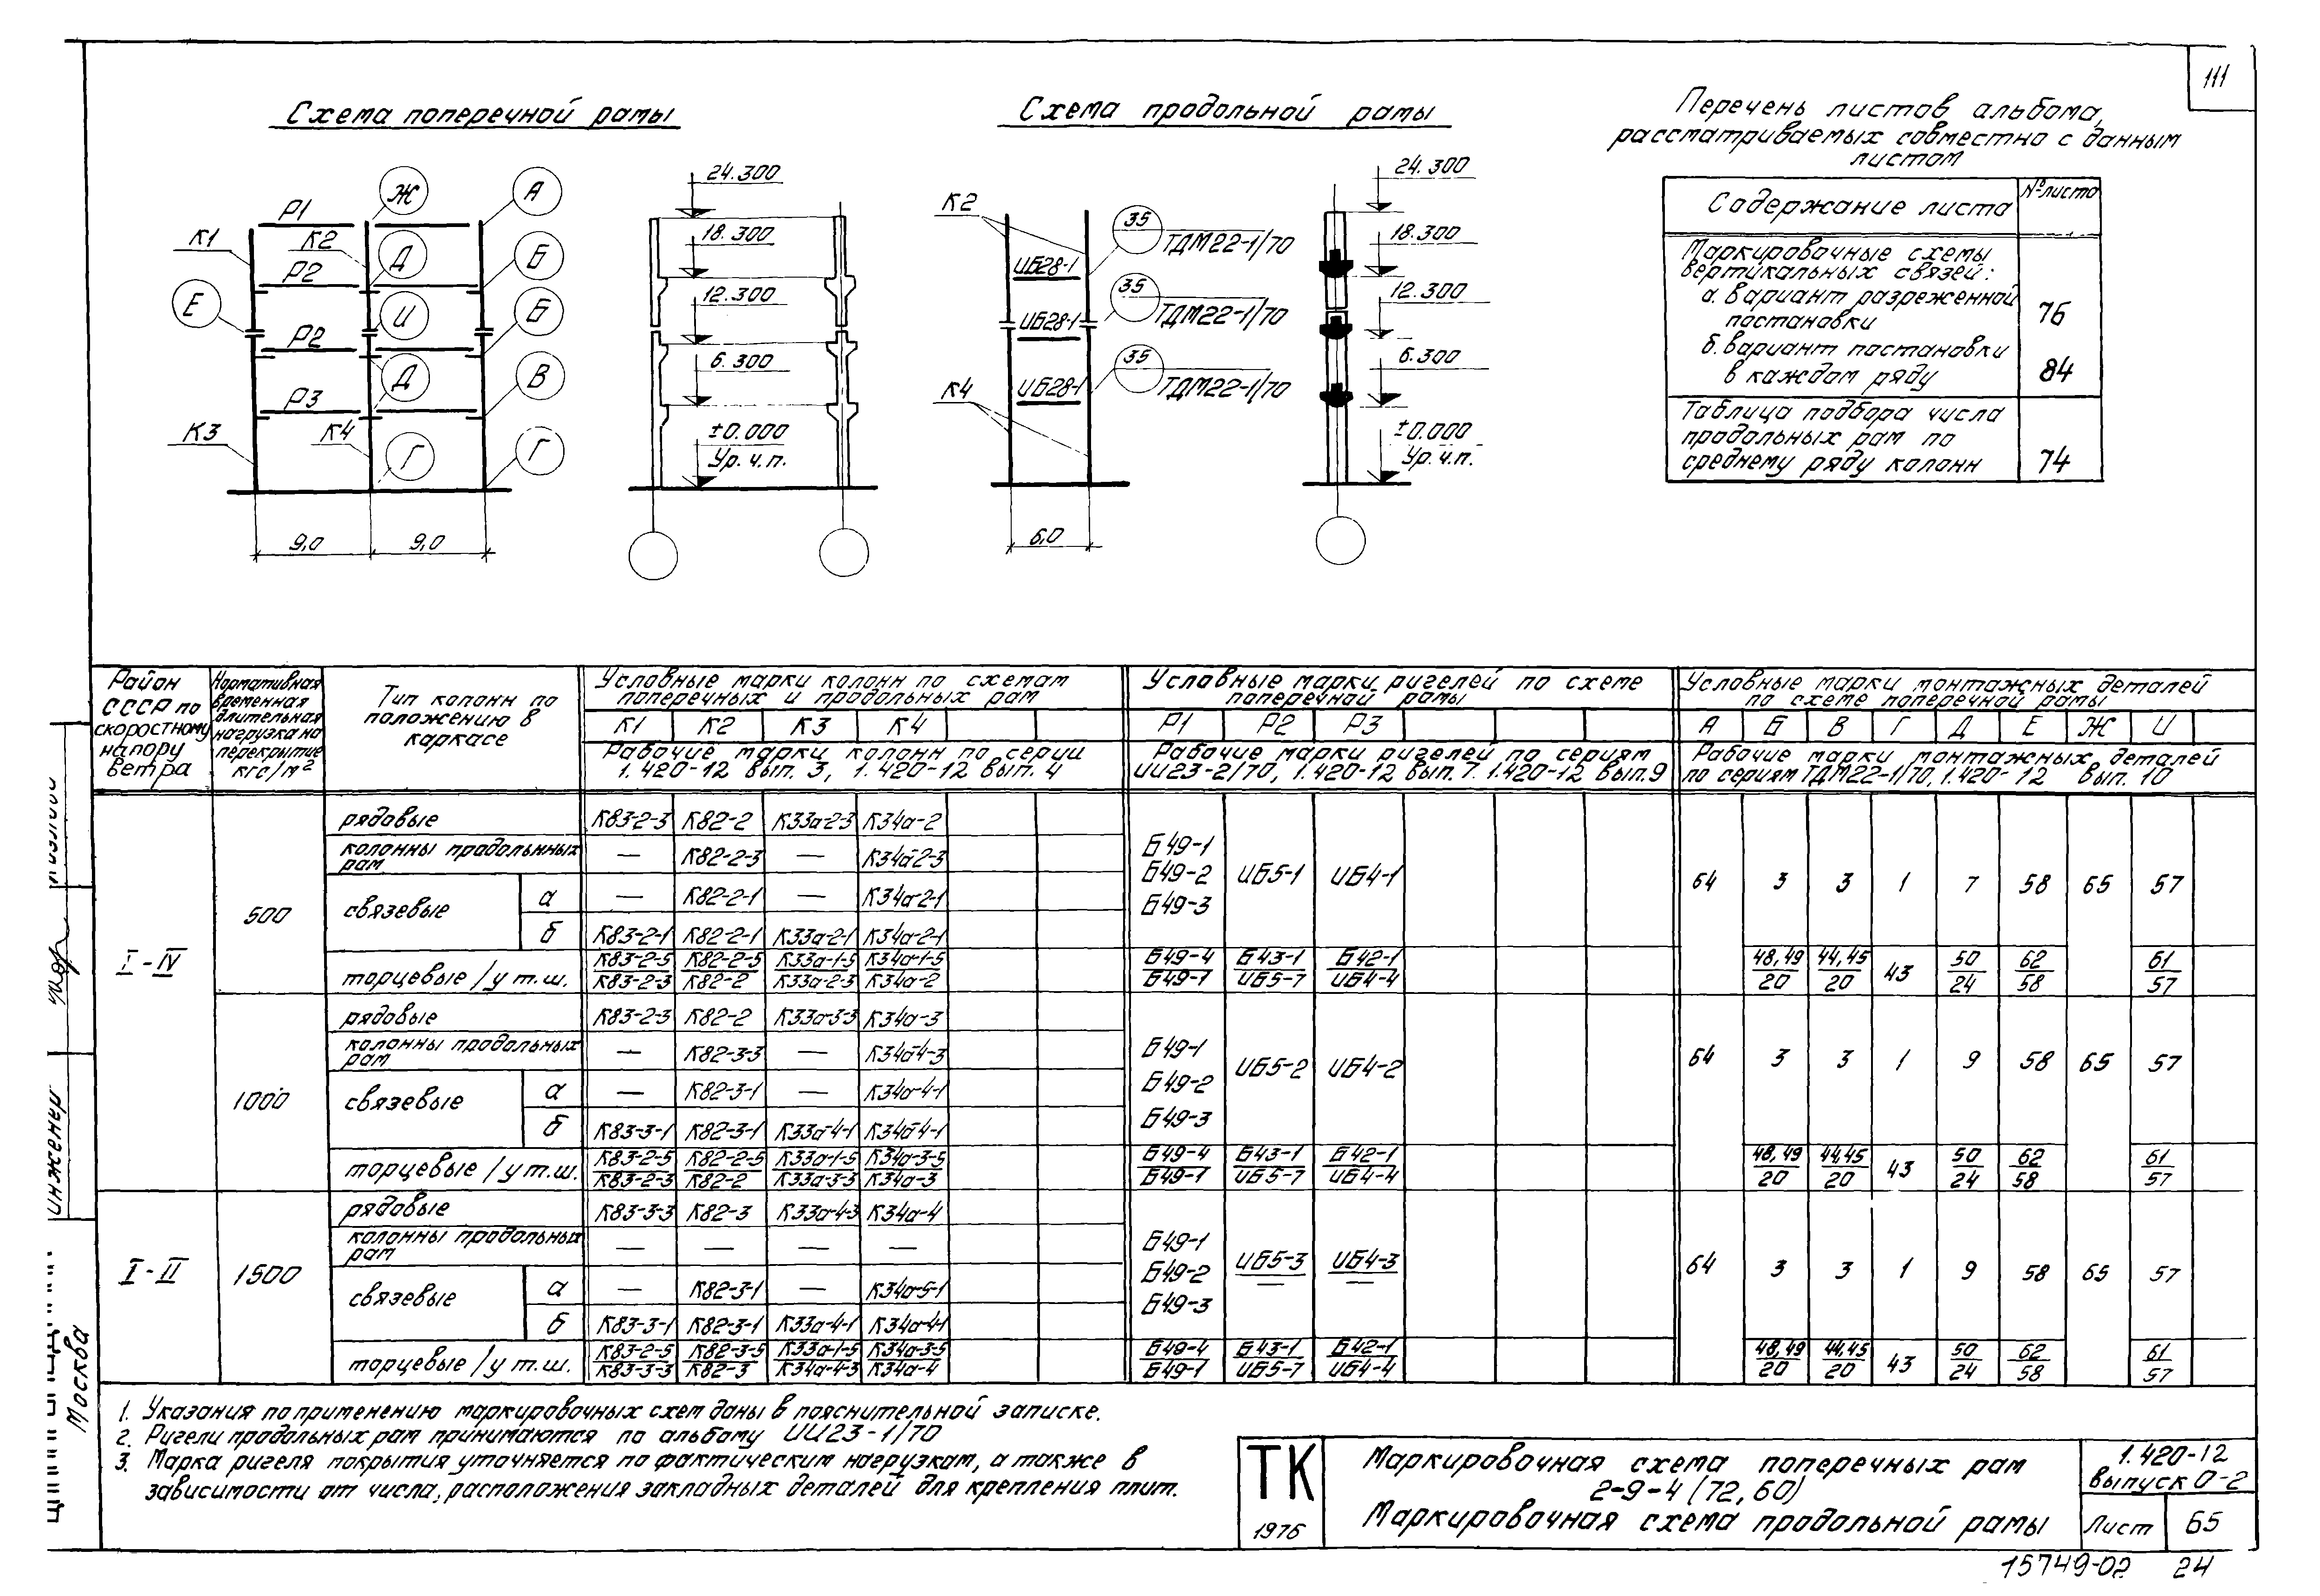 111
Схема поперечной рамы
Ж
А
Р1
К1
К2
Д
Б
Р2
Е
И
Б
Р2
Д
В
Р3
К3
К4
Г
Г
9,0
9,0
24.300
18.300
12.300
6.300
±0.000
Ур. ч.п.
Схема продольной рамы
К2
35
ТДМ22-1/70
ИБ28-1
35
ТДМ22-1/70
ИБ28-1
35
ТДМ22-1/70
ИБ28-1
К4
6,0
24.300
18.300
12.300
6.300
±0.000
Ур. ч.п.
Перечень листов альбома,
рассматриваемых совместно с данным
листом
Содержание листа
№ листа
Маркировочные схемы
вертикальных связей:
а. вариант разреженной
постановки
76
б. вариант постановки
в каждом ряду
84
Таблица подбора числа
продольных рам по
среднему ряду колонн
74
Район
СССР по
скоростному
напору
ветра
Нормативная
временная
длительная
нагрузка на
перекрытие
кгс/м²
Тип колонн по
положению в
каркасе
Условные марки колонн по схемам
поперечных и продольных рам
К1 К2 К3 К4
Рабочие марки колонн по серии
1.420-12 вып. 3, 1.420-12 вып. 4
Условные марки ригелей по схеме
поперечной рамы
Р1 Р2 Р3
Рабочие марки ригелей по сериям
ИИ23-2/70, 1.420-12 вып.7. 1.420-12 вып.9
Условные марки монтажных деталей
по схеме поперечной рамы
А Б В Г Д Е Ж И
Рабочие марки монтажных деталей
по сериям ТДМ22-1/70, 1.420-12 вып. 10
I-IV
500
рядовые К83-2-3 К82-2 К33а-2-3 К34а-2
колонны продольнных
рам — К82-2-3 — К34а-2-3
связевые
а — К82-2-1 — К34а-2-1
б К83-2-1 К82-2-1 К33а-2-1 К34а-2-1
Б49-1
Б49-2 ИБ5-1 ИБ4-1
Б49-3
64 3 3 1 7 58 65 57
торцевые / у т.ш.
К83-2-5 К82-2-5 К33а-1-5 К34а-1-5 Б49-4 Б43-1 Б42-1 48,49 44,45 43 50 62 61
К83-2-3 К82-2 К33а-2-3 К34а-2 Б49-1 ИБ5-7 ИБ4-4 20 20 24 58 57
1000
рядовые К83-2-3 К82-2 К33а-3-3 К34а-3
колонны продольных
рам — К82-3-3 — К34а-4-3
связевые
а — К82-3-1 — К34а-4-1
б К83-3-1 К82-3-1 К33а-4-1 К34а-4-1
Б49-1
Б49-2 ИБ5-2 ИБ4-2
Б49-3
64 3 3 1 9 58 65 57
торцевые / у т.ш.
К83-2-5 К82-2-5 К33а-1-5 К34а-3-5 Б49-4 Б43-1 Б42-1 48,49 44,45 43 50 62 61
К83-2-3 К82-2 К33а-3-3 К34а-3 Б49-1 ИБ5-7 ИБ4-4 20 20 24 58 57
I-II
1500
рядовые К83-3-3 К82-3 К33а-4-3 К34а-4
колонны продольных
рам — — — —
связевые
а — К82-3-1 — К34а-5-1
б К83-3-1 К82-3-1 К33а-4-1 К34а-4-1
Б49-1
Б49-2 ИБ5-3 ИБ4-3
— —
Б49-3
64 3 3 1 9 58 65 57
торцевые / у т.ш.
К83-2-5 К82-3-5 К33а-1-5 К34а-3-5 Б49-4 Б43-1 Б42-1 48,49 44,45 43 50 62 61
К83-3-3 К82-3 К34а-4-3 К34а-4 Б49-1 ИБ5-7 ИБ4-4 20 20 24 58 57
1. Указания по применению маркировочных схем даны в пояснительной записке.
2. Ригели продольных рам принимаются по альбому ИИ23-1/70
3. Марка ригеля покрытия уточняется по фактическим нагрузкам, а также в
зависимости от числа, расположения закладных деталей для крепления плит.
ТК
1976
Маркировочная схема поперечных рам
2-9-4 (72, 60)
Маркировочная схема продольной рамы
1.420-12
выпуск 0-2
Лист 65
15749-02 24
инженер
Москва